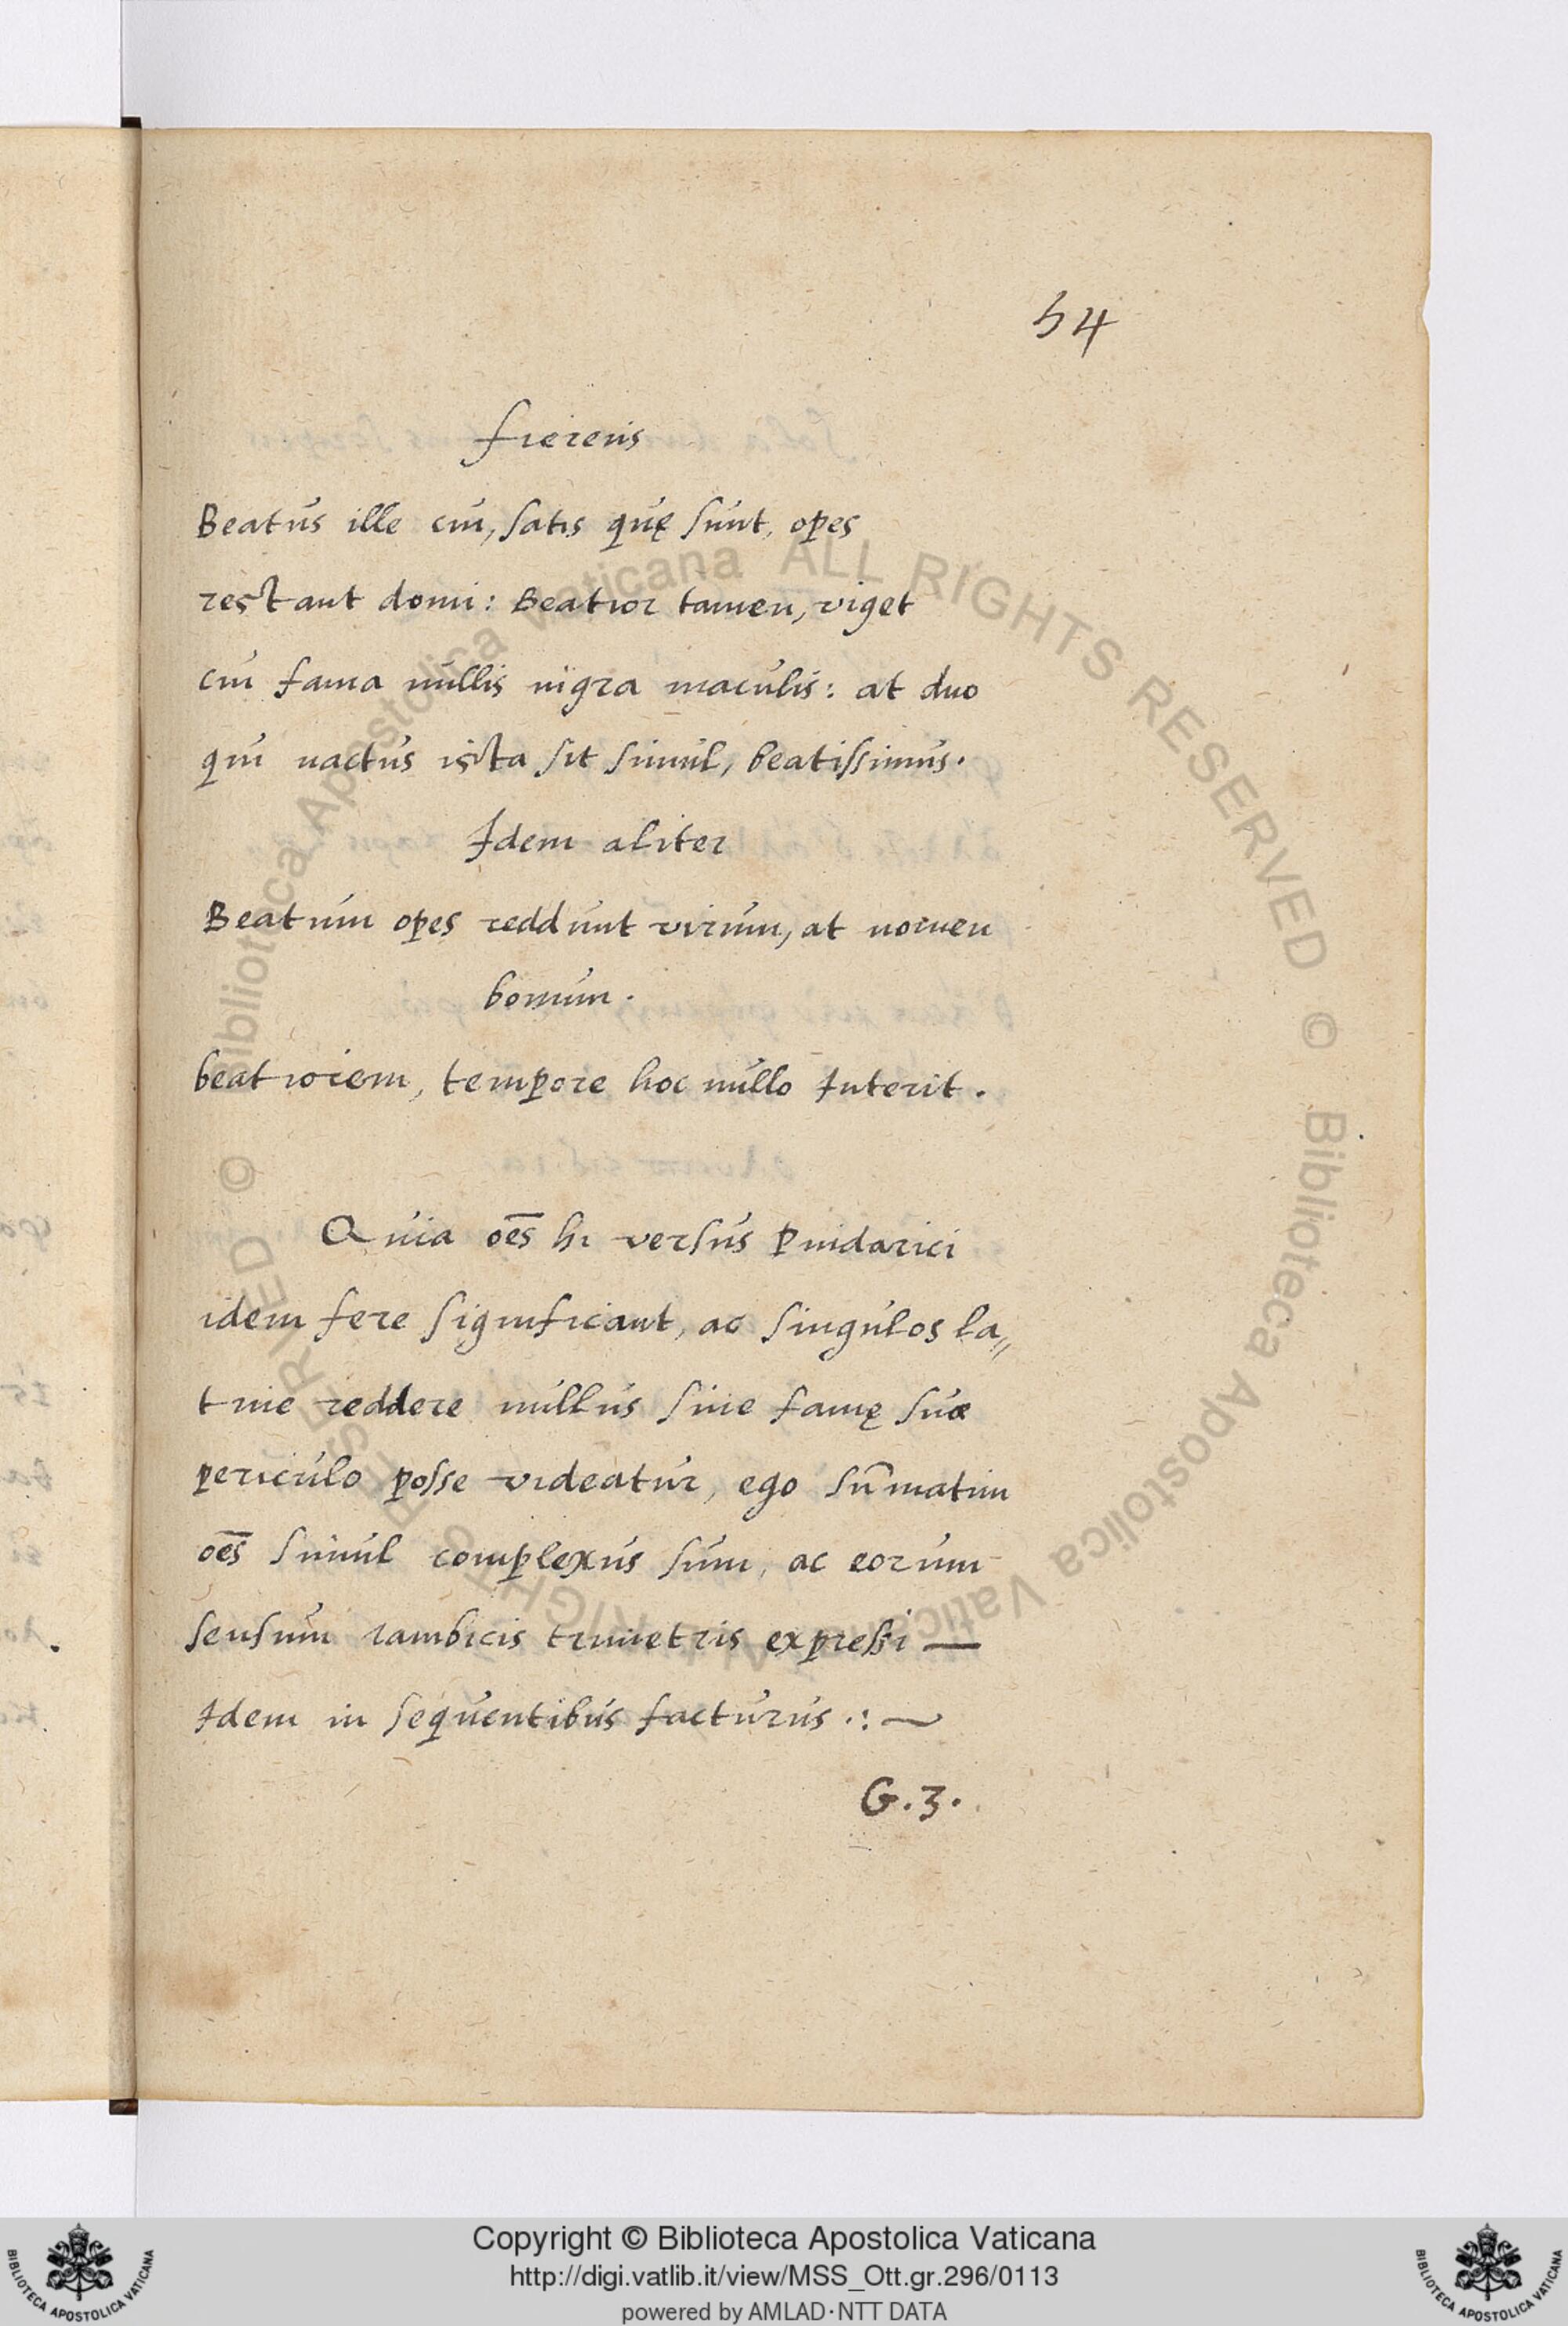 54
fiereris
Beatus ille cui, satis quę sunt, opes
restant domi: Beatior tamen, viget
cui fama nullis nigra maculis: at duo
qui nactus ista sit simul, beatissimus.
Idem aliter
Beatum opes reddunt virum, at nomen
bonum.
beatiorem, tempore hoc nullo Interit.
Quia oēs hi versus Pindarici
idem fere significant, ac singulos la„
tine reddere nullus sine famę suæ
periculo posse videatur, ego sūmatim
oēs simul complexus sum, ac eorum
sensum iambicis trimetris expreßi —
Idem in sequentibus facturus .: ~
G.3.
© Biblioteca Apostolica Vaticana ALL RIGHTS RESERVED © Biblioteca Apostolica Vaticana ALL RIGHTS RESERVED
Copyright © Biblioteca Apostolica Vaticana
http://digi.vatlib.it/view/MSS_Ott.gr.296/0113
powered by AMLAD·NTT DATA
BIBLIOTECA APOSTOLICA VATICANA
BIBLIOTECA APOSTOLICA VATICANA